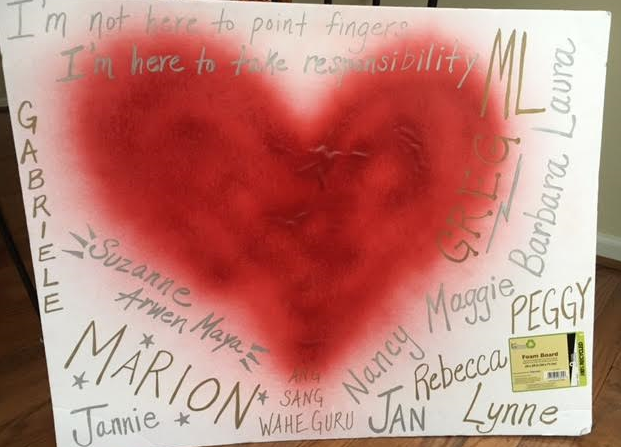 I'm not here to point fingers
I'm here to take responsibility
ML
Laura
GREG
Barbara
GABRIELE
Suzanne
Arwen Maya
Maggie
PEGGY
MARION
Nancy
Rebecca
Foam Board
ANG
SANG
WAHE GURU
JAN
Lynne
Jannie